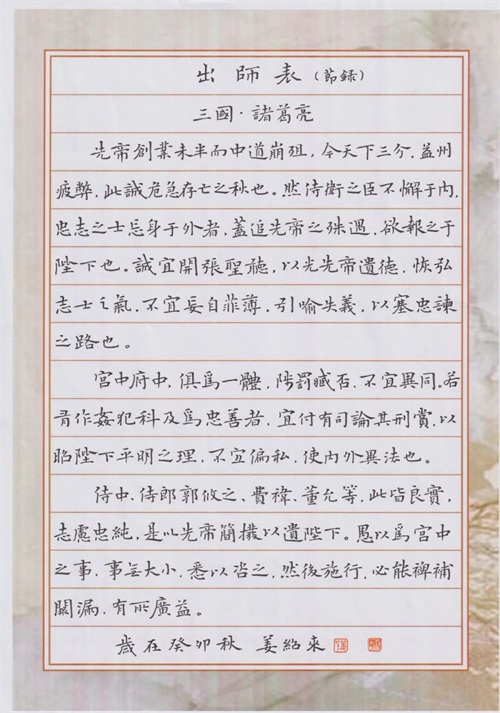 出師表（節録）
三國·諸葛亮
先帝創業未半而中道崩殂，今天下三分，益州
疲弊，此誠危急存亡之秋也。然侍衛之臣不懈于内，
忠志之士忘身于外者，蓋追先帝之殊遇，欲報之于
陛下也。誠宜開張聖聽，以光先帝遺德，恢弘
志士之氣，不宜妄自菲薄，引喻失義，以塞忠諫
之路也。
宫中府中，俱爲一體，陟罰臧否，不宜異同。若
有作姦犯科及爲忠善者，宜付有司論其刑賞，以
昭陛下平明之理，不宜偏私，使内外異法也。
侍中、侍郎郭攸之、費禕、董允等，此皆良實，
志慮忠純，是以先帝簡擢以遺陛下。愚以爲宫中
之事，事無大小，悉以咨之，然後施行，必能裨補
闕漏，有所廣益。
歲在癸卯秋 姜紹來